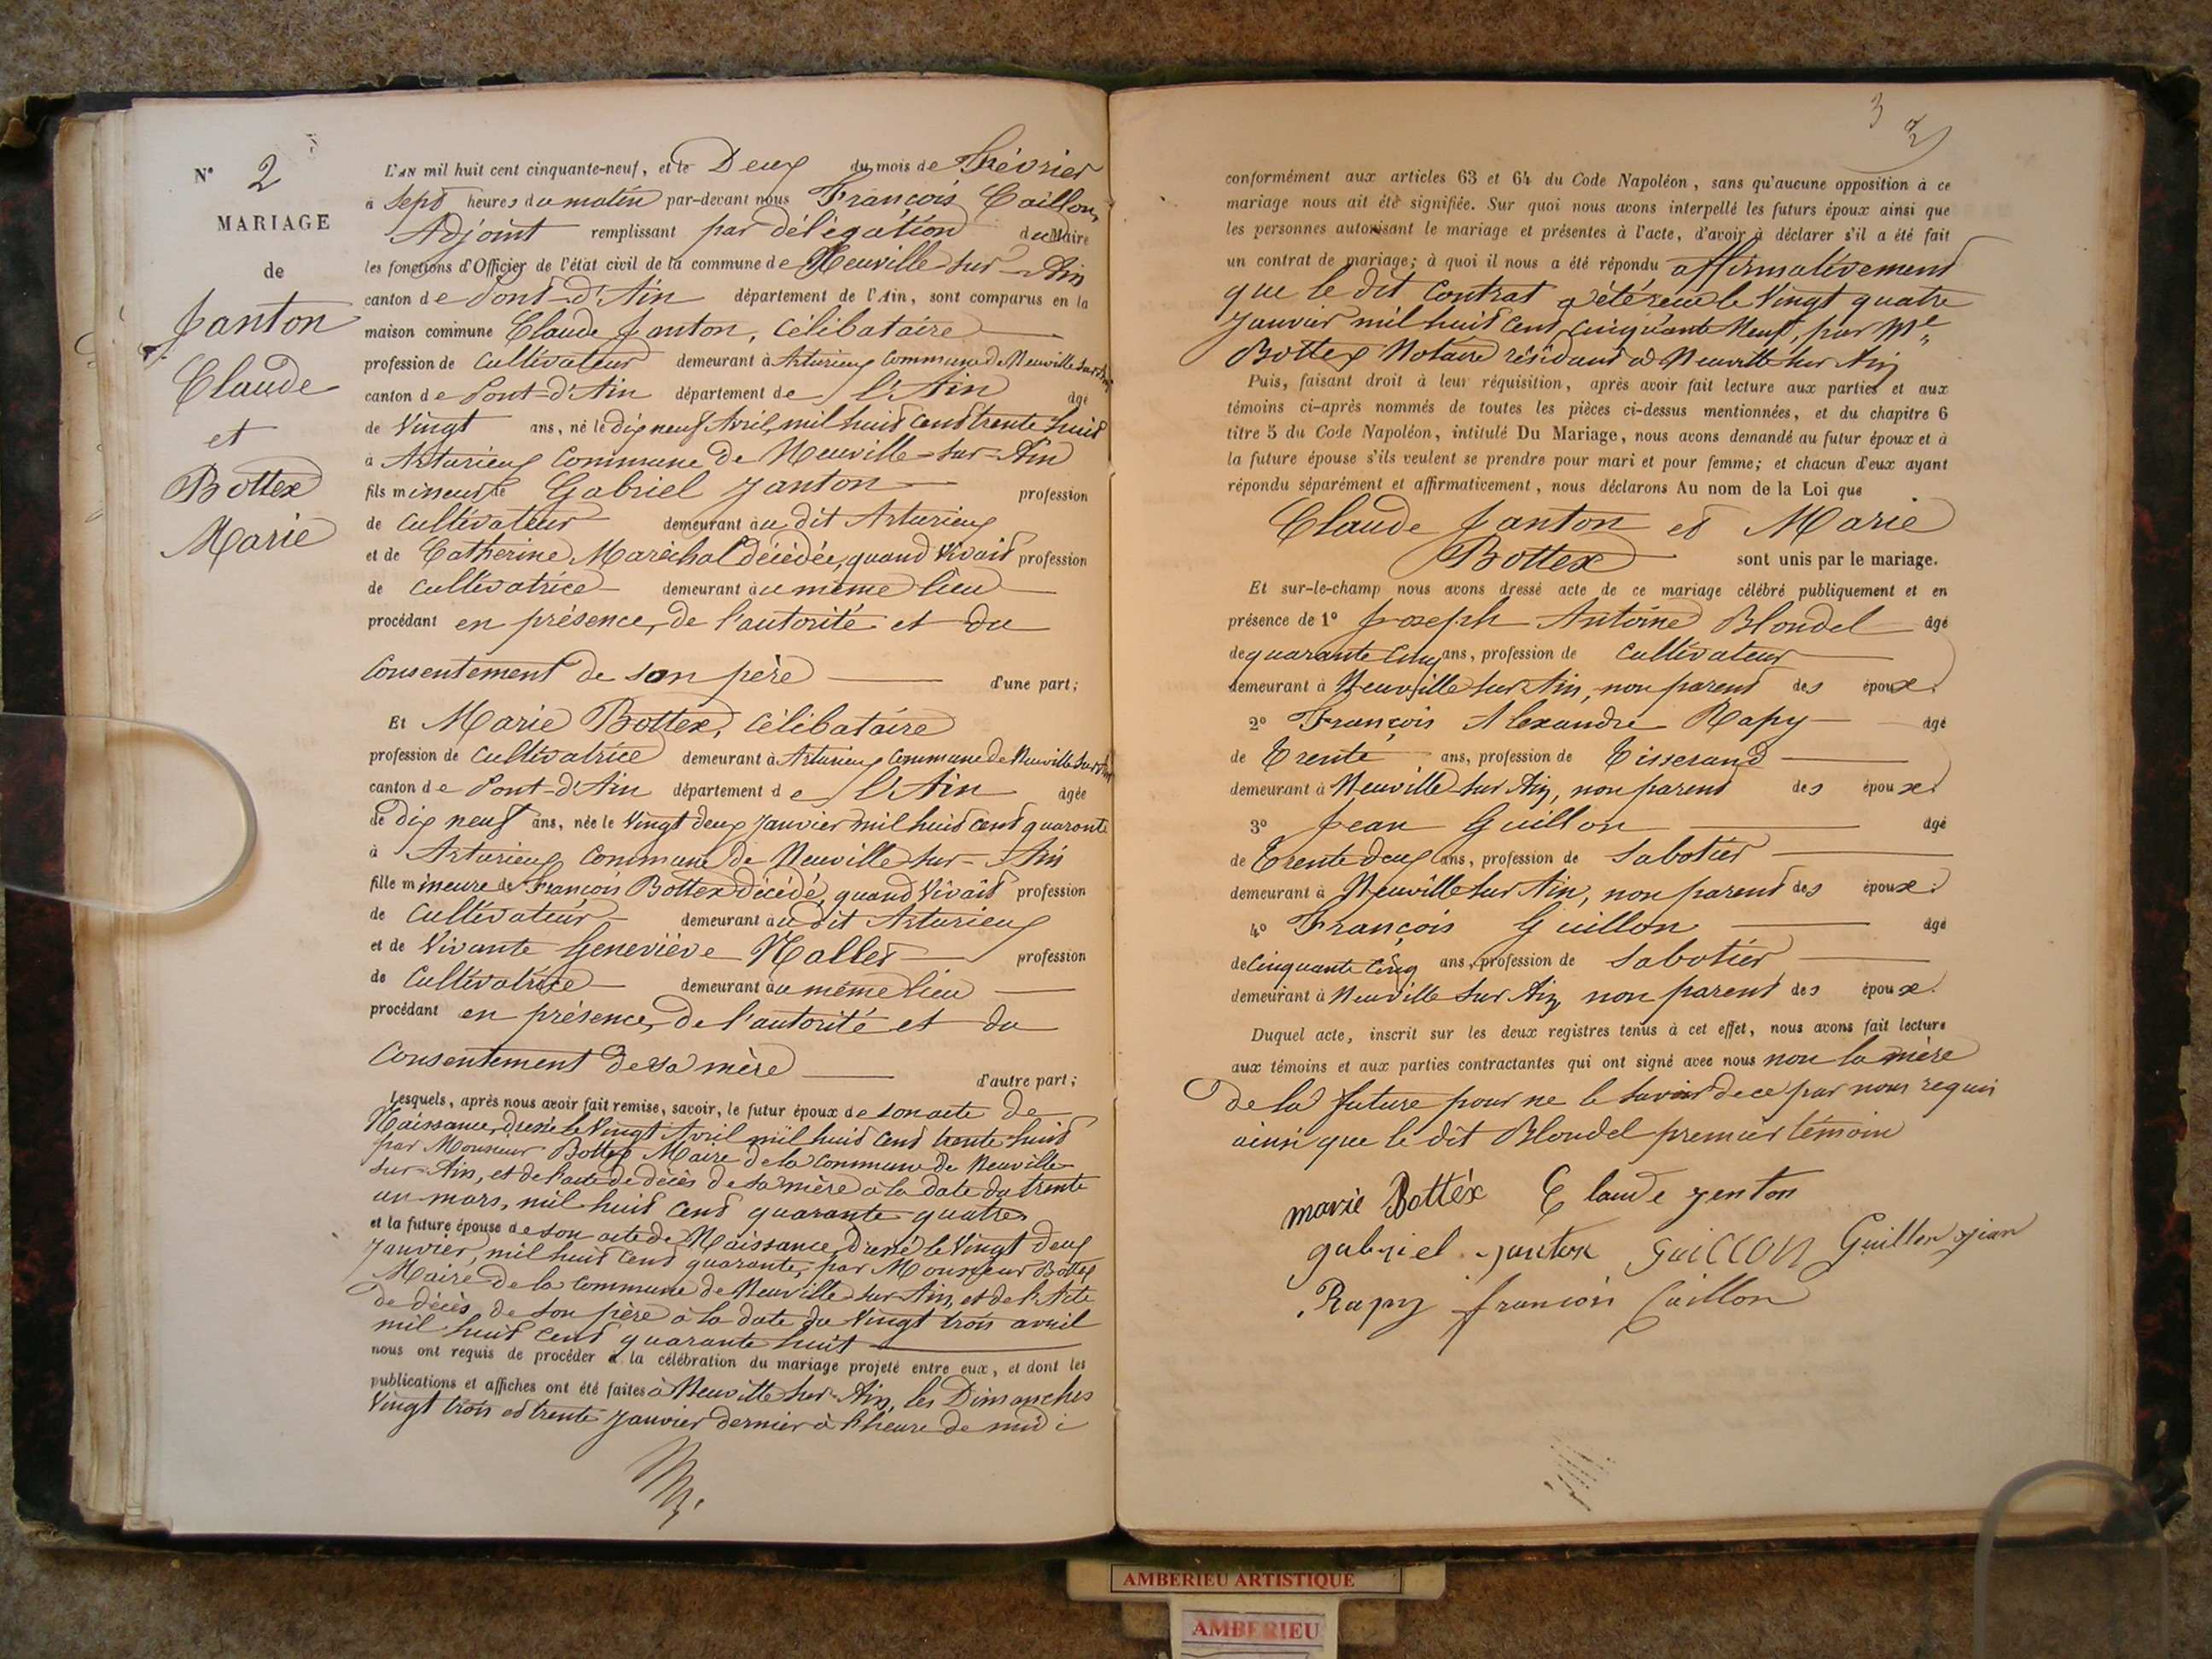 N° 2
MARIAGE
de
Janton
Claude
et
Bottex
Marie
L'AN mil huit cent cinquante-neuf, et le Deux du mois de Février
à Sept heures du matin par-devant nous François Caillon,
Adjoint remplissant par délégation du Maire
les fonctions d'Officier de l'état civil de la commune de Neuville-sur-Ain
canton de Pont-d'Ain département de l'Ain, sont comparus en la
maison commune Claude Janton, célibataire
profession de Cultivateur demeurant à Arturieux Commune de Neuville sur Ain
canton de Pont-d'Ain département de l'Ain âgé
de Vingt ans, né le dix neuf Avril, mil huit cent trente huit
à Arturieux Commune de Neuville-sur-Ain
fils mineur de Gabriel Janton profession
de Cultivateur demeurant au dit Arturieux
et de Catherine Maréchal décédée, quand Vivait profession
de cultivatrice demeurant au même lieu
procédant en présence, de l'autorité et du
Consentement de son père d'une part;
Et Marie Bottex, célibataire
profession de Cultivatrice demeurant à Arturieux Commune de Neuville sur Ain
canton de Pont-d'Ain département de l'Ain âgée
de dix neuf ans, née le Vingt deux Janvier mil huit cent quarante
à Arturieux Commune de Neuville sur-Ain
fille mineure de François Bottex décédé, quand Vivait profession
de Cultivateur demeurant au dit Arturieux
et de Vivante Geneviève Nallet profession
de Cultivatrice demeurant au même lieu
procédant en présence, de l'autorité et du
Consentement de sa mère d'autre part;
Lesquels, après nous avoir fait remise, savoir, le futur époux de son acte de
Naissance, dressé le Vingt Avril mil huit cent trente-huit
par Monsieur Bottex Maire de la Commune de Neuville
sur-Ain, et de l'acte de décès de sa mère à la date du trente
un mars, mil huit cent quarante quatre
et la future épouse de son acte de Naissance, dressé le Vingt deux
Janvier, mil huit cent quarante, par Monsieur Bottex
Maire de la Commune de Neuville sur Ain, et de l'Acte
de décès de son père à la date du Vingt trois avril
mil huit cent quarante huit
nous ont requis de procéder à la célébration du mariage projeté entre eux, et dont les
publications et affiches ont été faites à Neuville sur-Ain, les Dimanches
Vingt trois et trente Janvier dernier à l'heure de midi
3
conformément aux articles 63 et 64 du Code Napoléon, sans qu'aucune opposition à ce
mariage nous ait été signifiée. Sur quoi nous avons interpellé les futurs époux ainsi que
les personnes autorisant le mariage et présentes à l'acte, d'avoir à déclarer s'il a été fait
un contrat de mariage; à quoi il nous a été répondu affirmativement
que le dit Contrat a été reçu le Vingt quatre
Janvier mil huit cent cinquante Neuf, par Me
Bottex Notaire résidant à Neuville sur Ain
Puis, faisant droit à leur réquisition, après avoir fait lecture aux parties et aux
témoins ci-après nommés de toutes les pièces ci-dessus mentionnées, et du chapitre 6
titre 5 du Code Napoléon, intitulé Du Mariage, nous avons demandé au futur époux et à
la future épouse s'ils veulent se prendre pour mari et pour femme; et chacun d'eux ayant
répondu séparément et affirmativement, nous déclarons Au nom de la Loi que
Claude Janton et Marie
Bottex sont unis par le mariage.
Et sur-le-champ nous avons dressé acte de ce mariage célébré publiquement et en
présence de 1° Joseph Antoine Blondel âgé
de quarante Cinq ans, profession de Cultivateur
demeurant à Neuville sur Ain, non parent des époux.
2° François Alexandre Rapy âgé
de Trente ans, profession de Tisserand
demeurant à Neuville sur Ain, non parent des époux.
3° Jean Guillon âgé
de Trente deux ans, profession de Sabotier
demeurant à Neuville sur Ain, non parent des époux.
4° François Guillon âgé
de Cinquante Cinq ans, profession de Sabotier
demeurant à Neuville sur Ain, non parent des époux.
Duquel acte, inscrit sur les deux registres tenus à cet effet, nous avons fait lecture
aux témoins et aux parties contractantes qui ont signé avec nous non la mère
De la future pour ne le savoir de ce par nous requis
ainsi que le dit Blondel premier témoin
marie Bottéx Claude jenton
gabriel janton GuiLLON Guillon jean
Rapy francois Caillon
AMBERIEU ARTISTIQUE
AMBERIEU